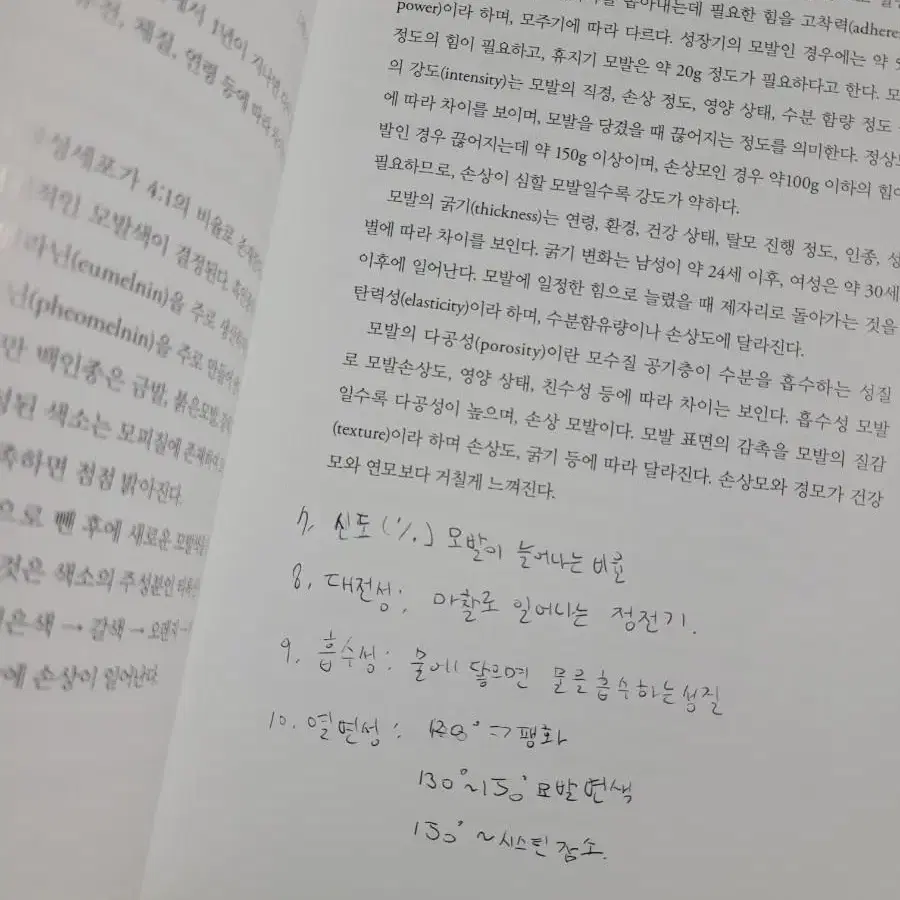 에서 1년이 지나면
유전, 체질, 연령 등에 따라
성세포가 4:1의 비율로 존재
적인 모발색이 결정된다.
라닌(eumelnin)을 주로 생산
닌(pheomelnin)을 주로 만들어
만 백인종은 금발, 붉은모발
성된 색소는 모피질에 존재하며
축하면 점점 밝아진다.
으로 뺀 후에 새로운 모발색
것은 색소의 주성분인
은색 → 갈색 → 오렌지 →
에 손상이 일어난다.
뽑아내는데 필요한 힘을 고착력(adhere
power)이라 하며, 모주기에 따라 다르다. 성장기의 모발인 경우에는 약
정도의 힘이 필요하고, 휴지기 모발은 약 20g 정도가 필요하다고 한다. 모
의 강도(intensity)는 모발의 직경, 손상 정도, 영양 상태, 수분 함량 정도
에 따라 차이를 보이며, 모발을 당겼을 때 끊어지는 정도를 의미한다. 정상모
발인 경우 끊어지는데 약 150g 이상이며, 손상모인 경우 약100g 이하의 힘이
필요하므로, 손상이 심할 모발일수록 강도가 약하다.
모발의 굵기(thickness)는 연령, 환경, 건강 상태, 탈모 진행 정도, 인종, 성
별에 따라 차이를 보인다. 굵기 변화는 남성이 약 24세 이후, 여성은 약 30세
이후에 일어난다. 모발에 일정한 힘으로 늘렸을 때 제자리로 돌아가는 것을
탄력성(elasticity)이라 하며, 수분함유량이나 손상도에 달라진다.
모발의 다공성(porosity)이란 모수질 공기층이 수분을 흡수하는 성질
로 모발손상도, 영양 상태, 친수성 등에 따라 차이는 보인다. 흡수성 모발
일수록 다공성이 높으며, 손상 모발이다. 모발 표면의 감촉을 모발의 질감
(texture)이라 하며 손상도, 굵기 등에 따라 달라진다. 손상모와 경모가 건강
모와 연모보다 거칠게 느껴진다.
7. 신도(%) 모발이 늘어나는 비률
8. 대전성: 마찰로 일어나는 정전기.
9. 흡수성: 물에 닿으면 물을 흡수하는 성질
10. 열변성: 120° => 팽화
130°~150° 모발변색
150° ~ 시스틴 감소.